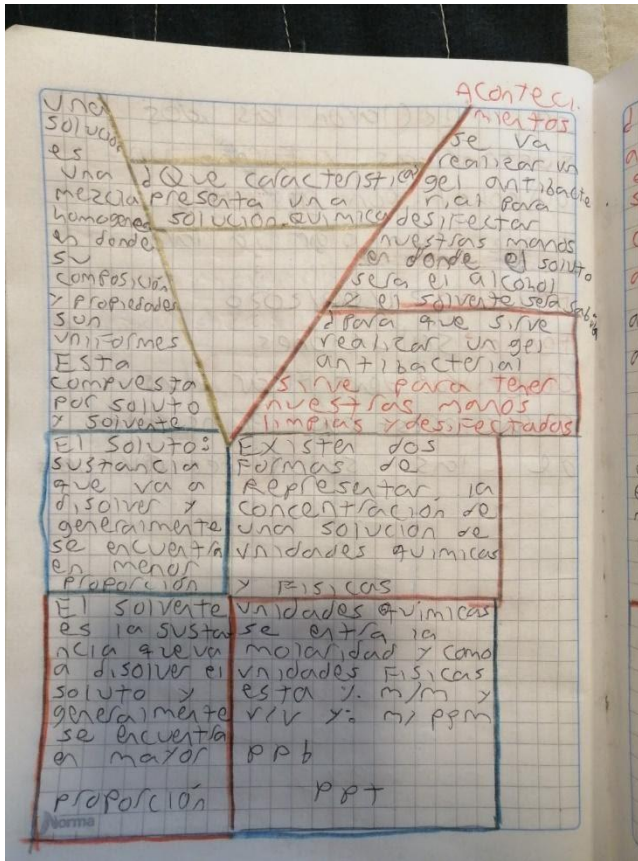 una
solución
es
una
mezcla
homogenea
en donde
su
composición
y propiedades
sun
uniformes
Esta
compuesta
por soluto
y solvente
¿Que caracteristica
presenta una
solución quimica
Aconteci.
mientos
se va
realizar un
gel antibacte
rial para
desifectar
nuestras manos
en donde el soluto
sera el alcohol
y el solvente sera sabi
¿para que sirve
realizar un gel
antibacterial
sirve para tener
nuestras manos
limpias y desifectadas
El soluto:
sustancia
que va a
disolver y
generalmente
se encuentra
en menor
proporción
Existen dos
formas de
Representar la
concentración de
una solución de
unidades quimicas
y Fisicas
El solvente
es la susta
ncia que va
a disolver el
soluto y
generalmente
se encuentra
en mayor
proporción
unidades quimicas
se entra la
molaridad y como
unidades Fisicas
esta %. m/m y
v/v y: m/ ppm
ppb
ppt
Norma